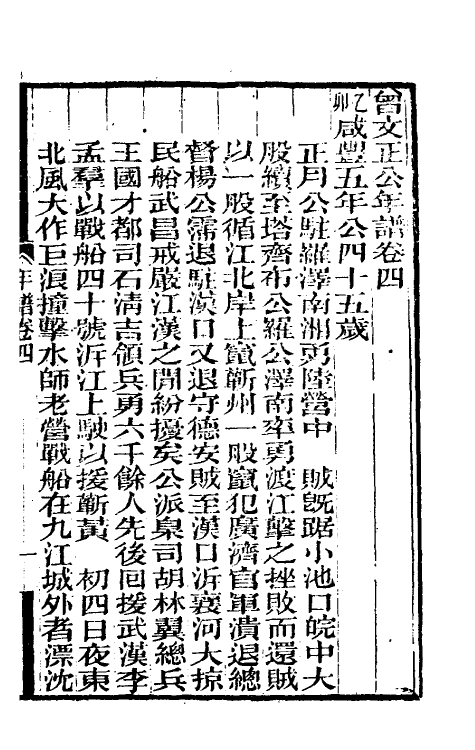 曾文正公年譜卷四
乙卯咸豐五年公四十五歲
正月公駐羅澤南湘勇陸營中　賊旣踞小池口皖中大
股續至塔齊布公羅公澤南率勇渡江擊之挫敗而還賊
以一股循江北岸上竄蘄州一股竄犯廣濟官軍潰退總
督楊公霈退駐漢口又退守德安賊至漢口泝襄河大掠
民船武昌戒嚴江漢之閒紛擾矣公派臬司胡林翼總兵
王國才都司石淸吉領兵勇六千餘人先後囘援武漢李
孟羣以戰船四十號泝江上駛以援蘄黃　初四日夜東
北風大作巨浪撞擊水師老營戰船在九江城外者漂沈
年譜卷四
一